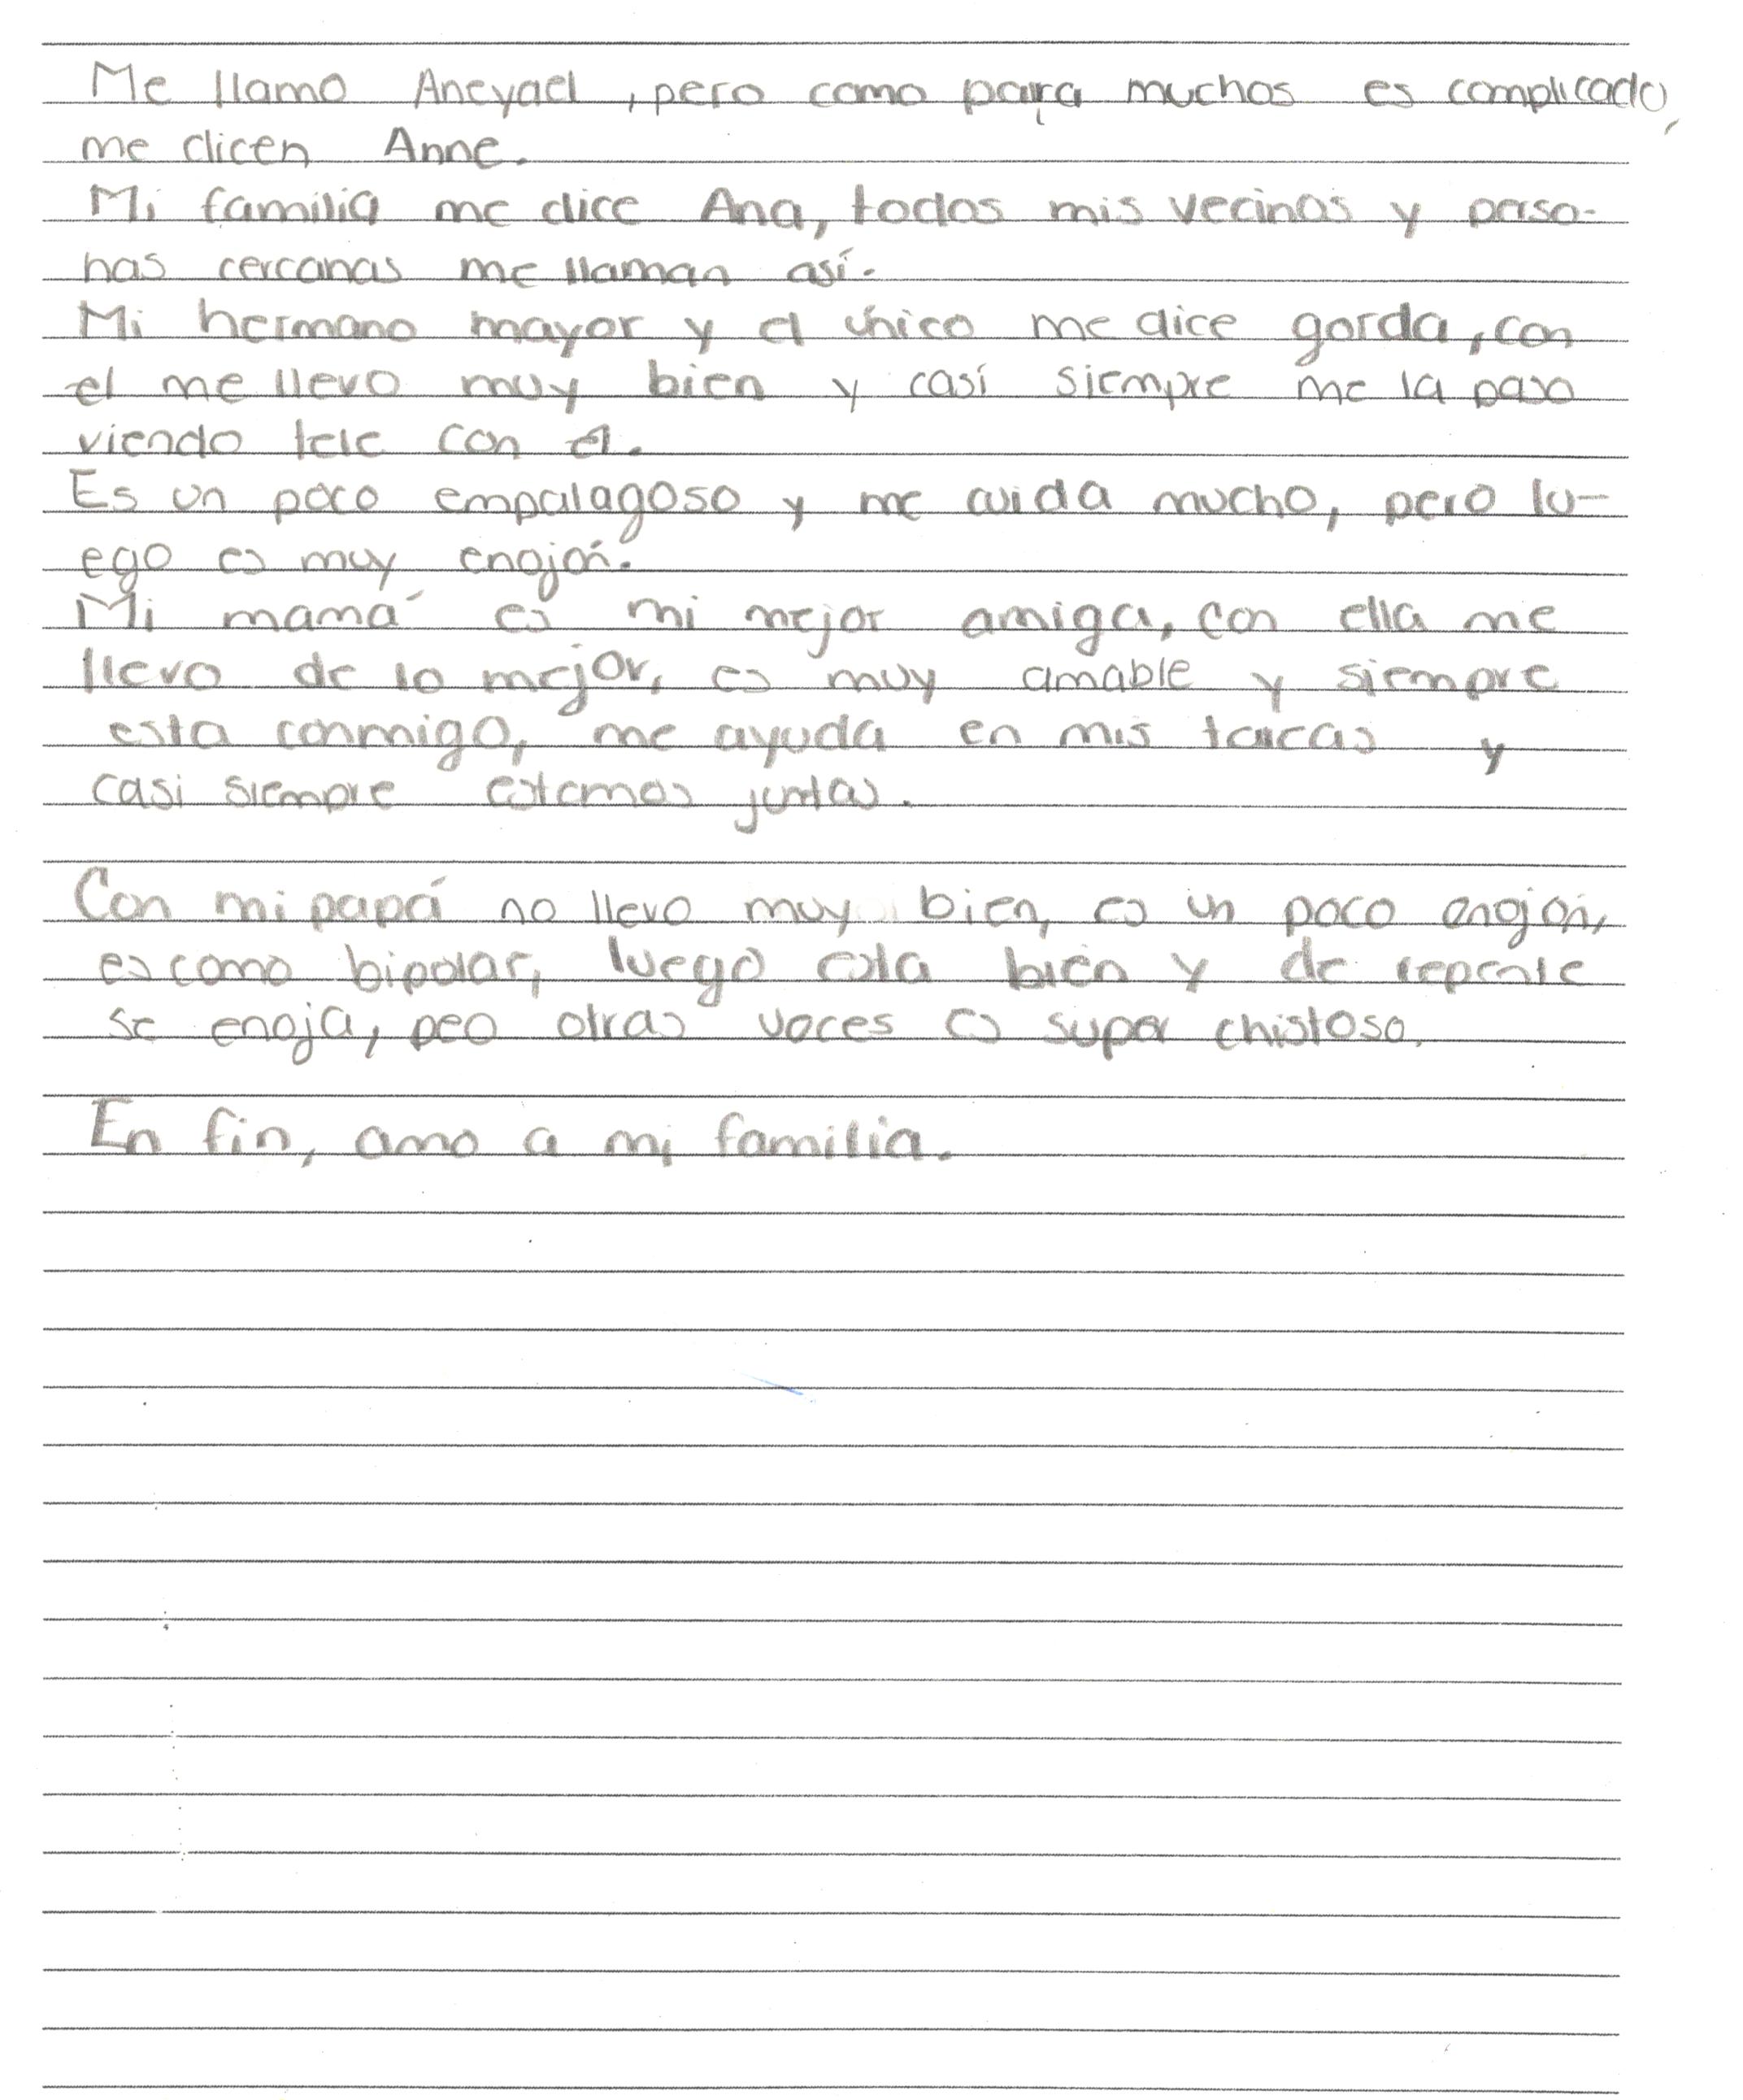 Me llamo Aneyael, pero como para muchos es complicado,
me dicen Anne.
Mi familia me dice Ana, todos mis vecinos y perso-
nas cercanas me llaman así.
Mi hermano mayor y el único me dice gorda, con
el me llevo muy bien y casí siempre me la paso
viendo tele con él.
Es un poco empalagoso y me cuida mucho, pero lu-
ego es muy enojón.
Mi mamá es mi mejor amiga, con ella me
llevo de lo mejor, es muy amable y siempre
esta conmigo, me ayuda en mis tareas y
casi siempre estamos juntas.
Con mi papá no llevo muy bien, es un poco enojón,
es como bipolar, luego esta bien y de repente
se enoja, peo otras veces es super chistoso.
En fin, amo a mi familia.